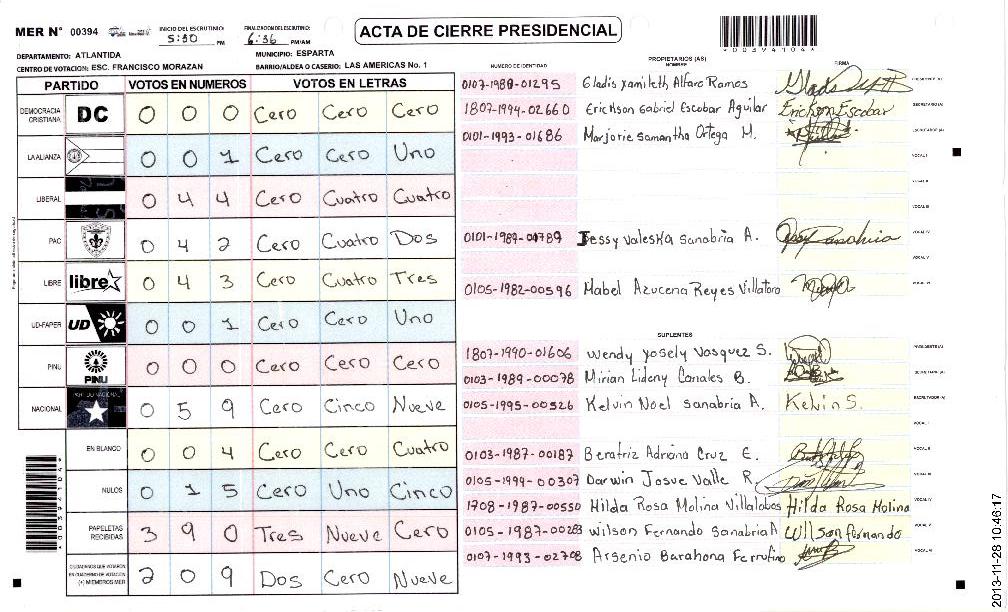 MER N° 00394
INICIO DEL ESCRUTINIO: 5:30 PM
FINALIZACION DEL ESCRUTINIO: 6:36 PM/AM
ACTA DE CIERRE PRESIDENCIAL
DEPARTAMENTO: ATLANTIDA MUNICIPIO: ESPARTA
CENTRO DE VOTACION: ESC. FRANCISCO MORAZAN BARRIO/ALDEA O CASERIO: LAS AMERICAS No. 1
PARTIDO VOTOS EN NUMEROS VOTOS EN LETRAS
DEMOCRACIA CRISTIANA DC 0 0 0 Cero Cero Cero
LA ALIANZA 0 0 1 Cero Cero Uno
LIBERAL 0 4 4 Cero Cuatro Cuatro
PAC 0 4 2 Cero Cuatro Dos
LIBRE libre 0 4 3 Cero Cuatro Tres
UD-FAPER UD 0 0 1 Cero Cero Uno
PINU PINU 0 0 0 Cero Cero Cero
NACIONAL PARTIDO NACIONAL 0 5 9 Cero Cinco Nueve
EN BLANCO 0 0 4 Cero Cero Cuatro
NULOS 0 1 5 Cero Uno Cinco
PAPELETAS RECIBIDAS 3 9 0 Tres Nueve Cero
CIUDADANOS QUE VOTARON EN CUADERNO DE VOTACION (+) MIEMBROS MER 2 0 9 Dos Cero Nueve
NUMERO DE IDENTIDAD PROPIETARIOS (AS) NOMBRE FIRMA
0107-1989-01295 Gladis Yamileth Alfaro Ramos PRESIDENTE (A)
1807-1994-02660 Erickson Gabriel Escobar Aguilar Erickson Escobar SECRETARIO (A)
0101-1993-01686 Marjorie Samantha Ortega M. ESCRUTADOR (A)
VOCAL I
VOCAL II
VOCAL III
0101-1989-00789 Jessy Valeska Sanabria A. VOCAL IV
VOCAL V
0105-1982-00596 Mabel Azucena Reyes Villatoro VOCAL VI
SUPLENTES
1807-1990-01606 Wendy Yosely Vasquez S. PRESIDENTE (A)
0103-1989-00078 Mirian Lideny Canales B. SECRETARIO (A)
0105-1995-00526 Kelvin Noel Sanabria A. Kelvin S. ESCRUTADOR (A)
VOCAL I
0103-1987-00187 Beratriz Adriana Cruz E. VOCAL II
0105-1999-00307 Darwin Josue Valle R. VOCAL III
1708-1987-00550 Hilda Rosa Molina Villalobos Hilda Rosa Molina VOCAL IV
0105-1987-00283 Wilson Fernando Sanabria A Wilson fernando VOCAL V
0107-1993-02708 Arsenio Barahona Ferrufino VOCAL VI
2013-11-28 10:46:17